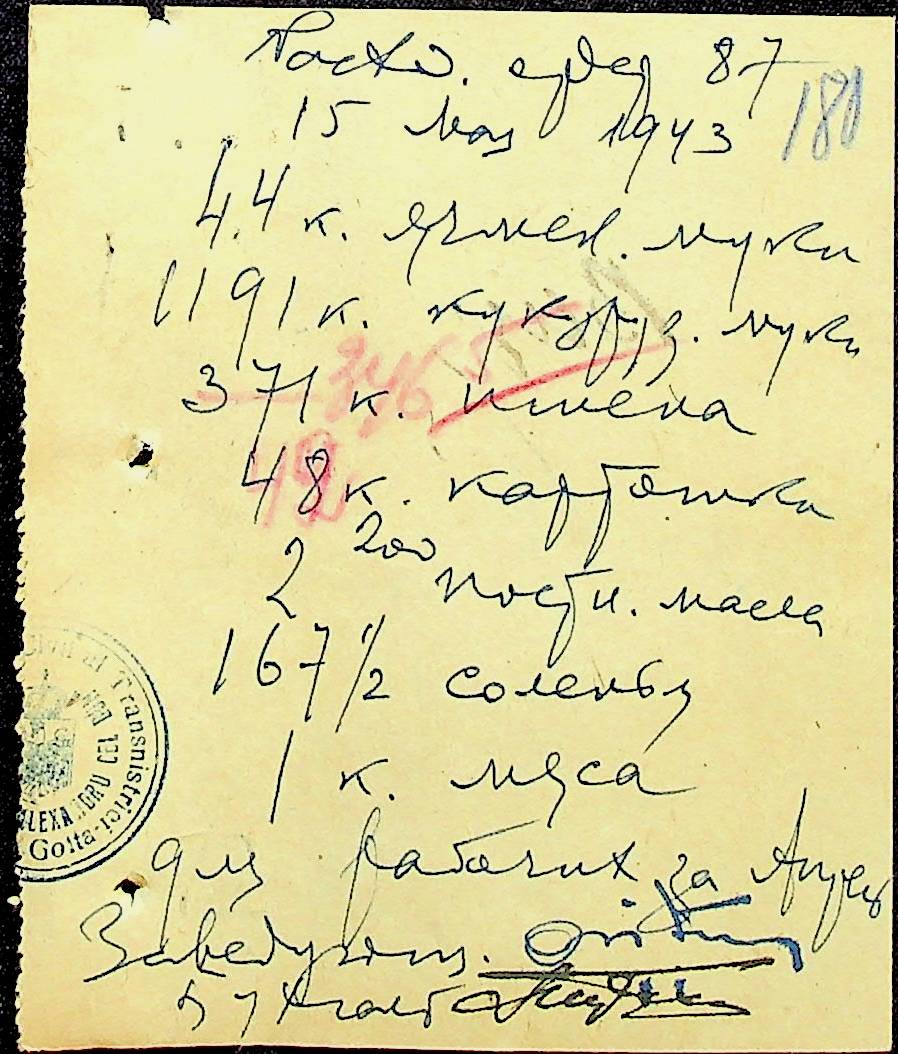 Расхо. ордер 87
180
15 Мая 1943
44 к. ячмен. муки
1191 к. кукуруз. муки
346
371 к. пшена
48 к. картошки
2 200 постн. масла
167 1/2 соленья
1 к. мяса
для рабочих за Апрель
Заведующ.
Бухгалт
Civil al Transnistriei
ALEXANDRU CEL BUN
Golta